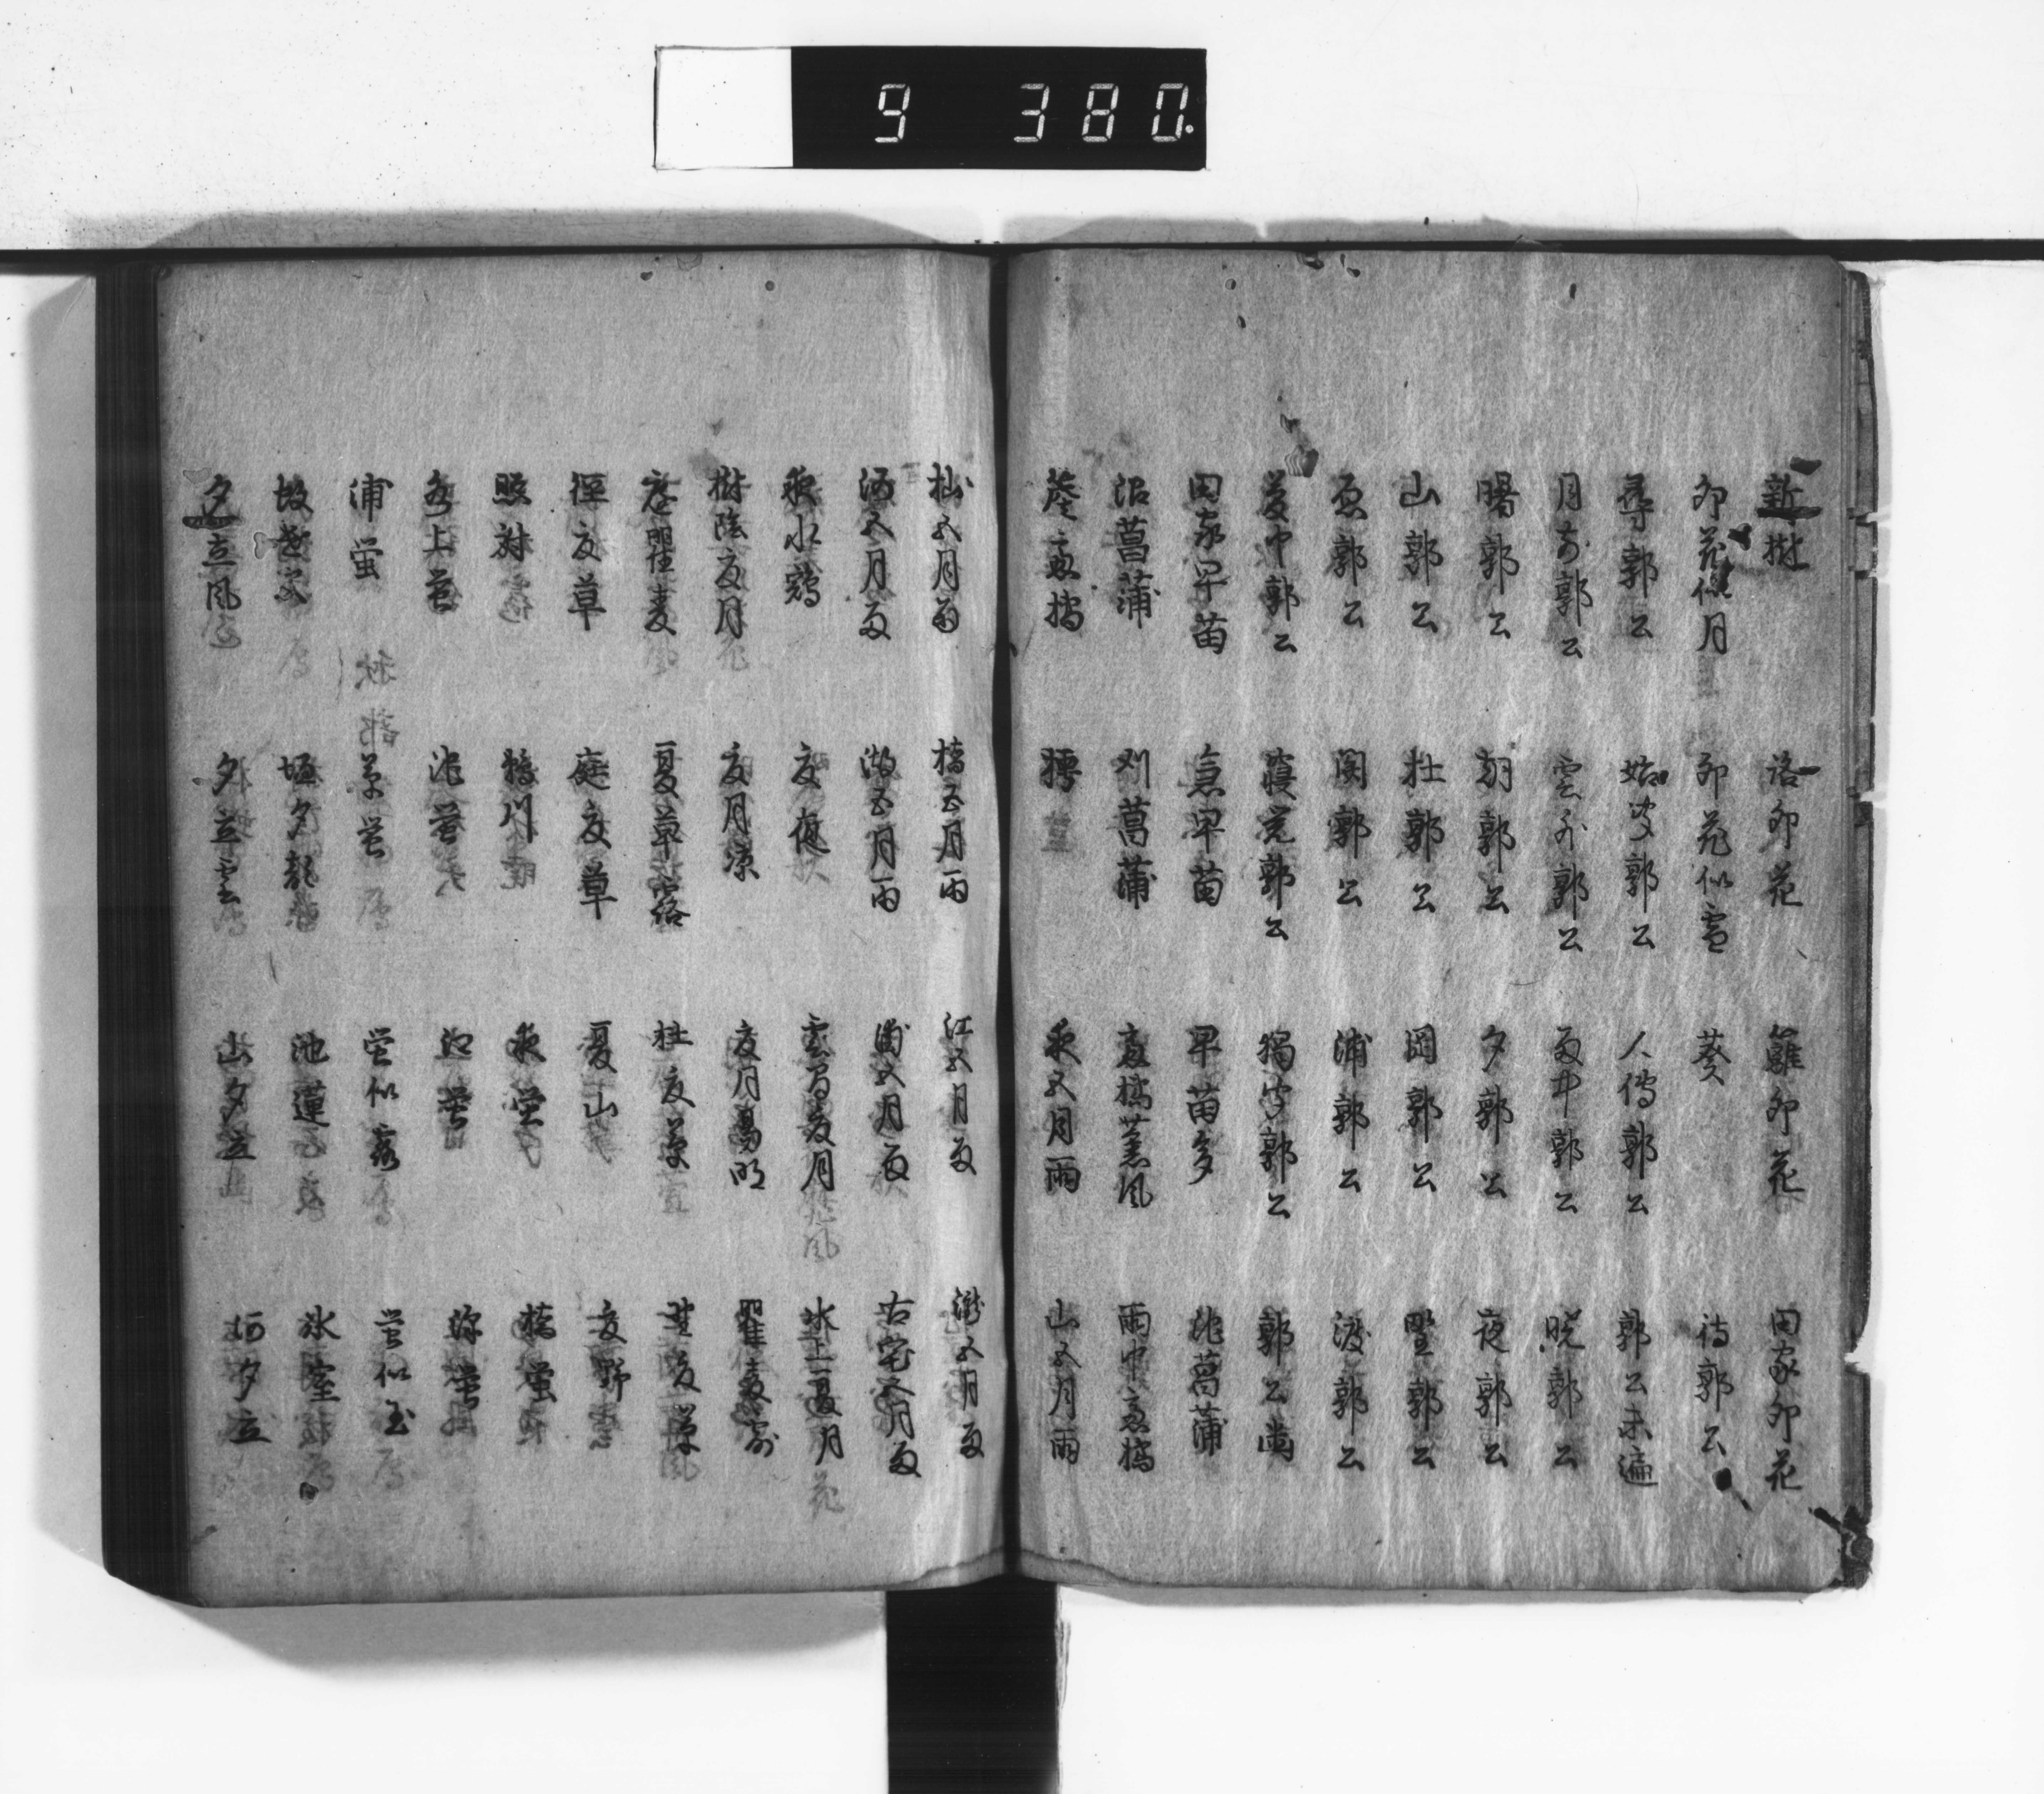 9 380
新樹 洛卯花 籬卯花 田家卯花
卯花似月 卯花似雪 葵 待郭公
尋郭公 始聞郭公 人傳郭公 郭公未遍
月前郭公 雲外郭公 雨中郭公 暁郭公
曙郭公 朝郭公 夕郭公 夜郭公
山郭公 杜郭公 岡郭公 野郭公
郭公 関郭公 浦郭公 渡郭公
夢中郭公 寝覚郭公 獨聞郭公 郭公
田家早苗 急早苗 早苗多 菖蒲
沼菖蒲 刈菖蒲 盧橘薫風 雨中盧橘
盧橘 夜五月雨 山五月雨
杣五月雨 橋五月雨 江五月雨 瀧五月雨
五月雨 湖五月雨 浦五月雨 古宅五月雨
夜水鶏 雲間夏月 水上夏月
樹陰夏月 夏月涼 夏月易明 瞿麦
庭瞿麦 夏草 杜夏草 野夏草
径夏草 庭夏草 夏山 夏野
照射 鵜川 夜蛍 橋蛍
水上蛍 蛍 蛍 蛍
浦蛍 草蛍 蛍似露 蛍似玉
蚊遣火 垣夕顔 池蓮 氷室
夕立風 夕立雲 山夕立 夕立